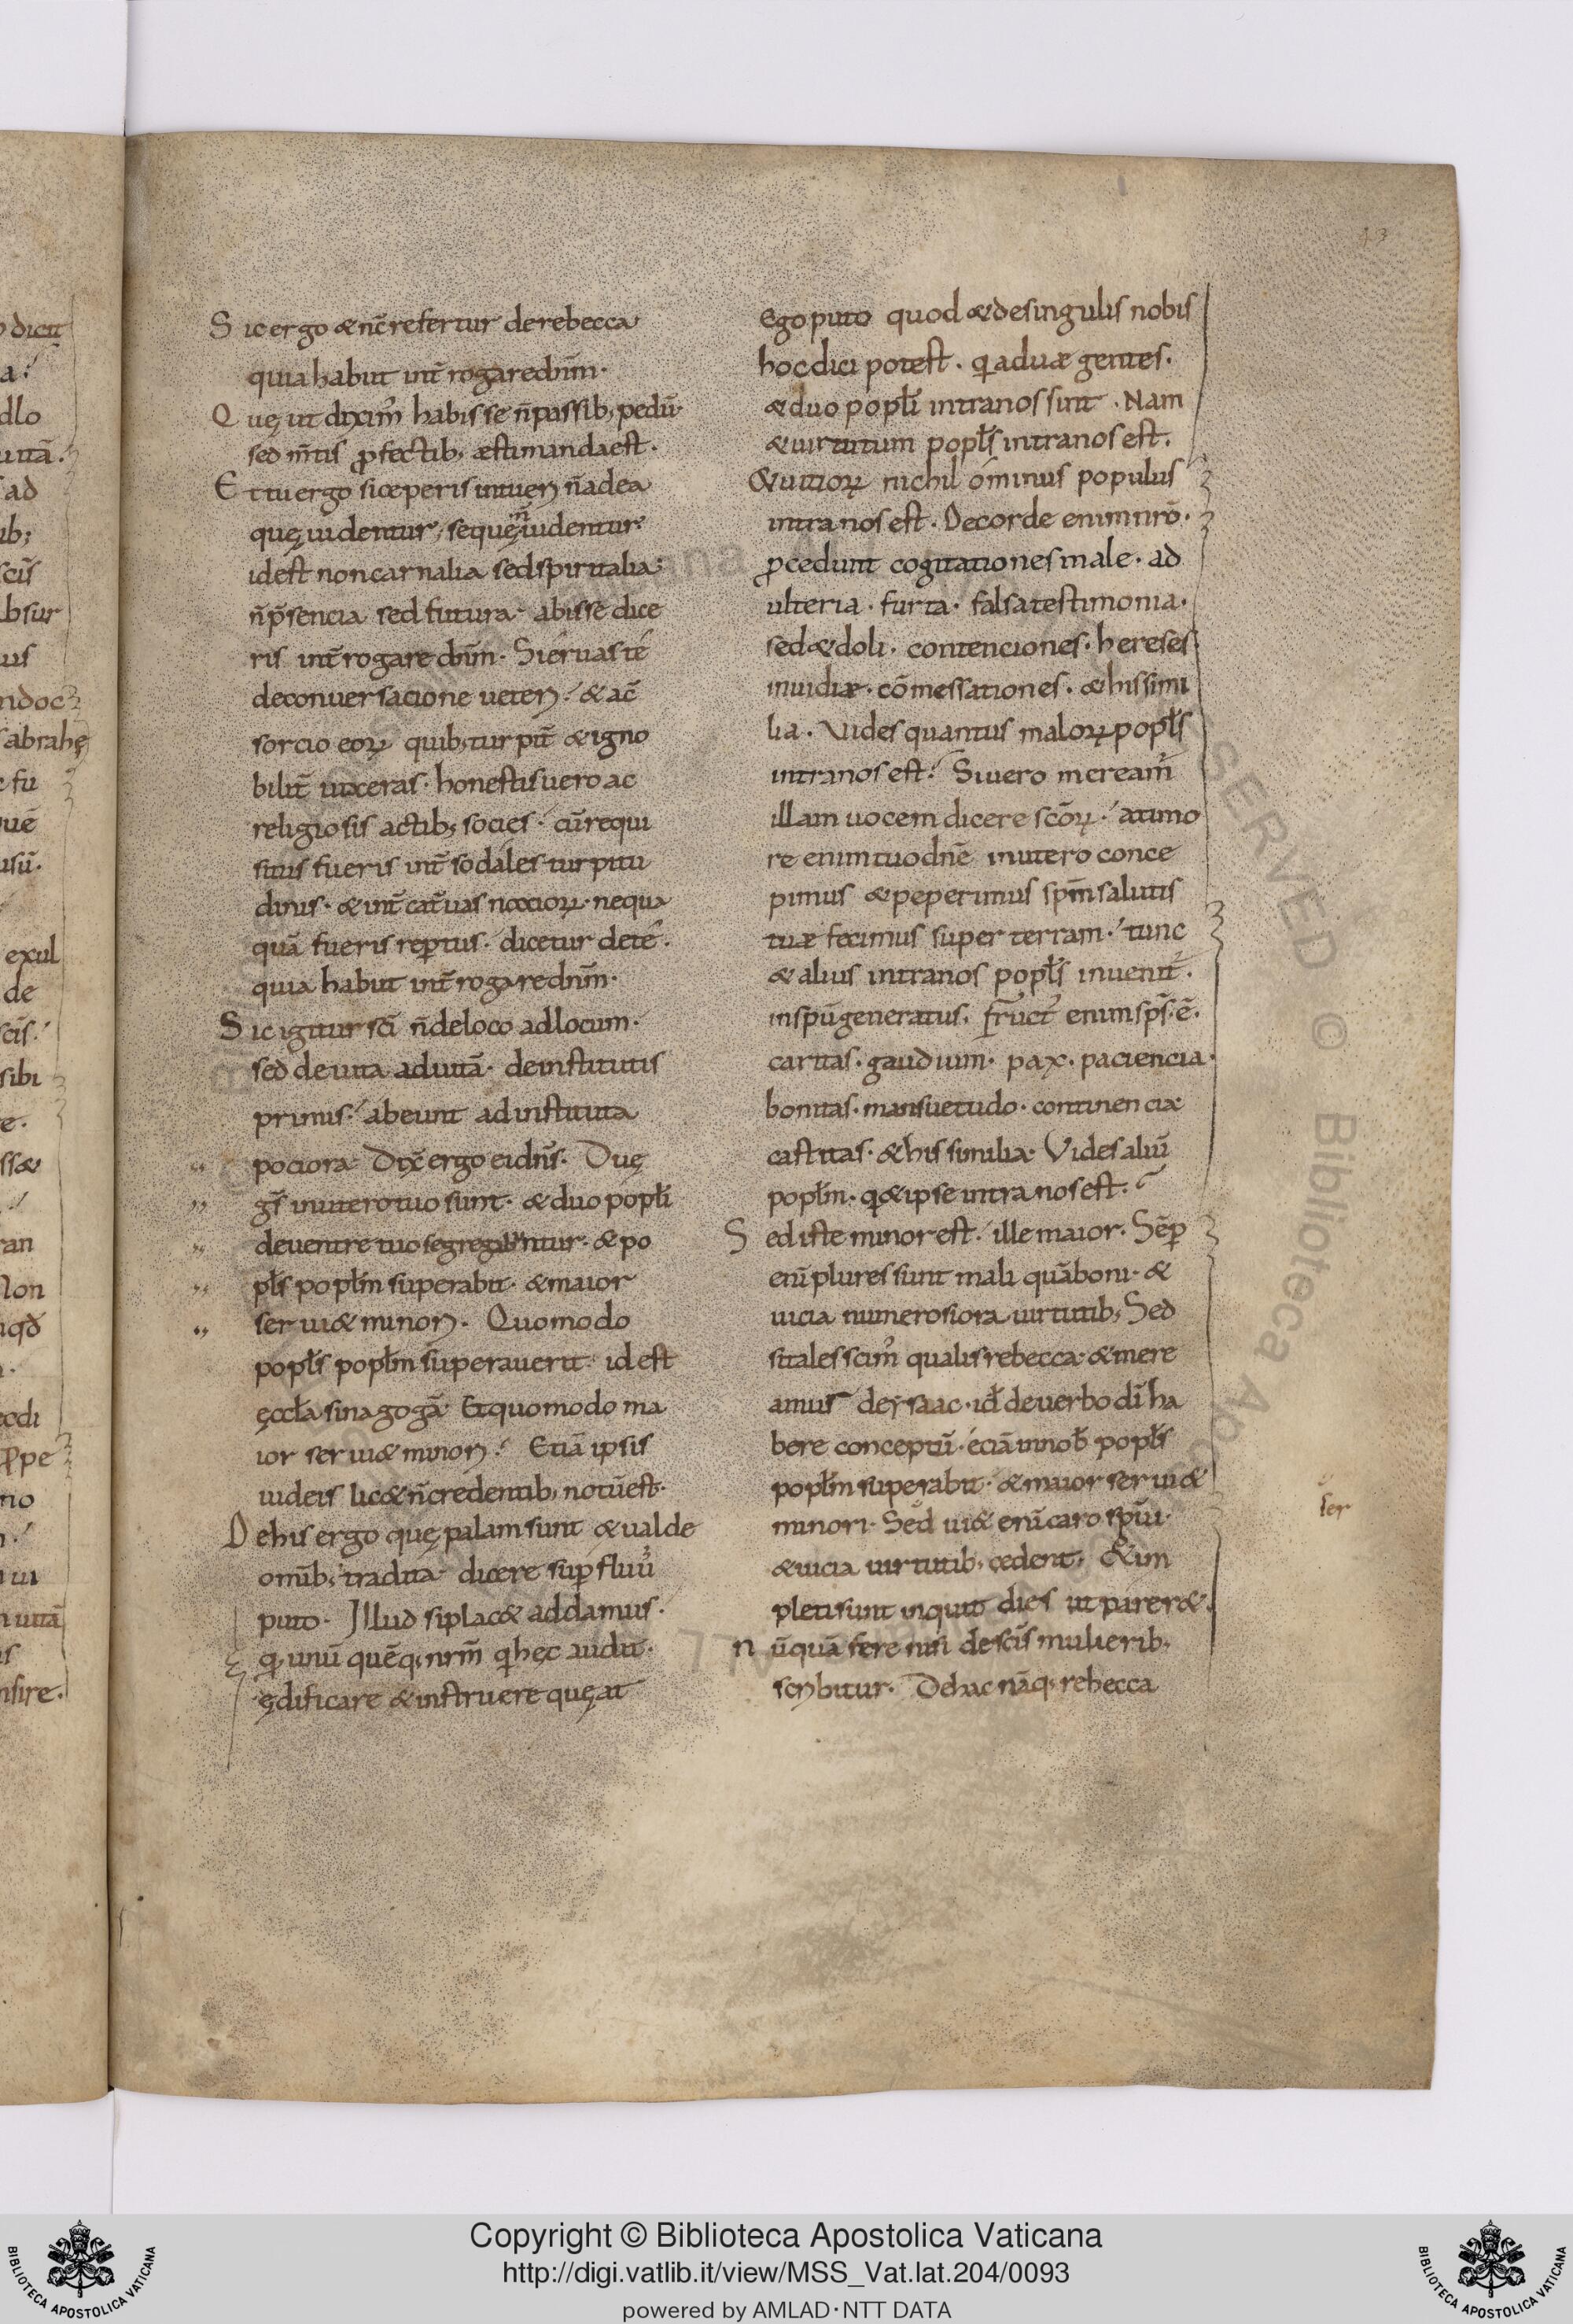 Sic ergo & nc̄ refertur de rebecca
quia habiit int̄rogare dn̄m·
Quę ut dixim᾽ habisse n̄ passib; pedū·
sed m̄tis ꝓfectib; æstimanda est·
Et tu ergo si ceperis intueri n̄ ad ea
quę uidentur, se quę n̄ uidentur·
id est non carnalia sed spiritalia·
n̄ p̄sencia sed futura· abisse dice
ris int̄rogare dn̄m· Si eruas te
de conuersacione ueteri· & a c̄
sorcio eoꝝ quib; turpit̄ & igno
bilit̄ uixeras· honestis uero ac
religiosis actib; socies· cū requi
situs fueris int̄ sodales turpitu
dinis· & int̄ cat̄uas noxioꝝ· nequa
quā fueris rep̄tus· dicetur de te·
quia habiit int̄rogare dn̄m·
Sic igitur sc̄i n̄ de loco ad locum·
sed de uita ad uitā· de institutis
primis· abeunt ad instituta
pociora· Dix̄ ergo ei dn̄s· Duę
gs̄ in utero tuo sunt· & duo popl̄i
de uentre tuo segregabuntur· & po
pl̄s popl̄m superabit· & maior
serui& minori· Quomodo
popl̄s popl̄m superauerit· id est
ęccl̄a sinagogā· Et quomodo ma
ior serui& minori· Etiā ipsis
iudeis lic& n̄ credentib; notū est·
De his ergo quę palam sunt & ualde
omīb; tradita· dicere sup̄fluū
puto· Illud si plac& addamus·
qđ unū quēq; nr̄m qi hęc audit·
ędificare & instruere queat
Ego puto quod & de singulis nobis
hoc dici potest· qđ duæ gentes·
& duo popl̄i intra nos sint· Nam
& uirtutum popl̄s intra nos est·
& uitioꝝ nichilominus populus
intra nos est· De corde enim nr̄o·
ꝓcedunt cogitationes male· ad
ulteria· furta· falsa testimonia·
sed & doli· contenciones· hereses·
inuidiæ· cōmessationes· & his simi
lia· Vides quantus maloꝝ popl̄s
intra nos est· Si uero meream᾽
illam uocem dicere sc̄oꝝ· a timo
re enim tuo dn̄e in utero conce
pimus & peperimus sp̄m salutis
tuæ fecimus super terram· tunc
& alius intra nos popl̄s inuenit᾽·
in sp̄u generatus· fruct᾽ enim sp̄s· ē·
caritas· gaudium· pax· paciencia·
bonitas· mansuetudo· continencia·
castitas· & his similia· Vides aliū
popl̄m· q & ipse intra nos est·
Sed iste minor est· ille maior· Sēp̄
enī plures sunt mali quā boni· &
uicia numerosiora uirtutib; Sed
si tales scim᾽ qualis rebecca· & mere
amur de ysaac· id̄ de uerbo dī ha
bere conceptū· eciā in nob̄ popl̄s
popl̄m superabit· & maior serui&
minori· Sed ui& enī caro sp̄ui·
& uicia uirtutib; cedent· Et im
pleti sunt inquit dies ut parer&·
Nūquā fere nisi de sc̄is mulierib;
scribitur· De hac nāq; rebecca
ser
Copyright © Biblioteca Apostolica Vaticana
http://digi.vatlib.it/view/MSS_Vat.lat.204/0093
powered by AMLAD·NTT DATA
BIBLIOTECA APOSTOLICA VATICANA
BIBLIOTECA APOSTOLICA VATICANA